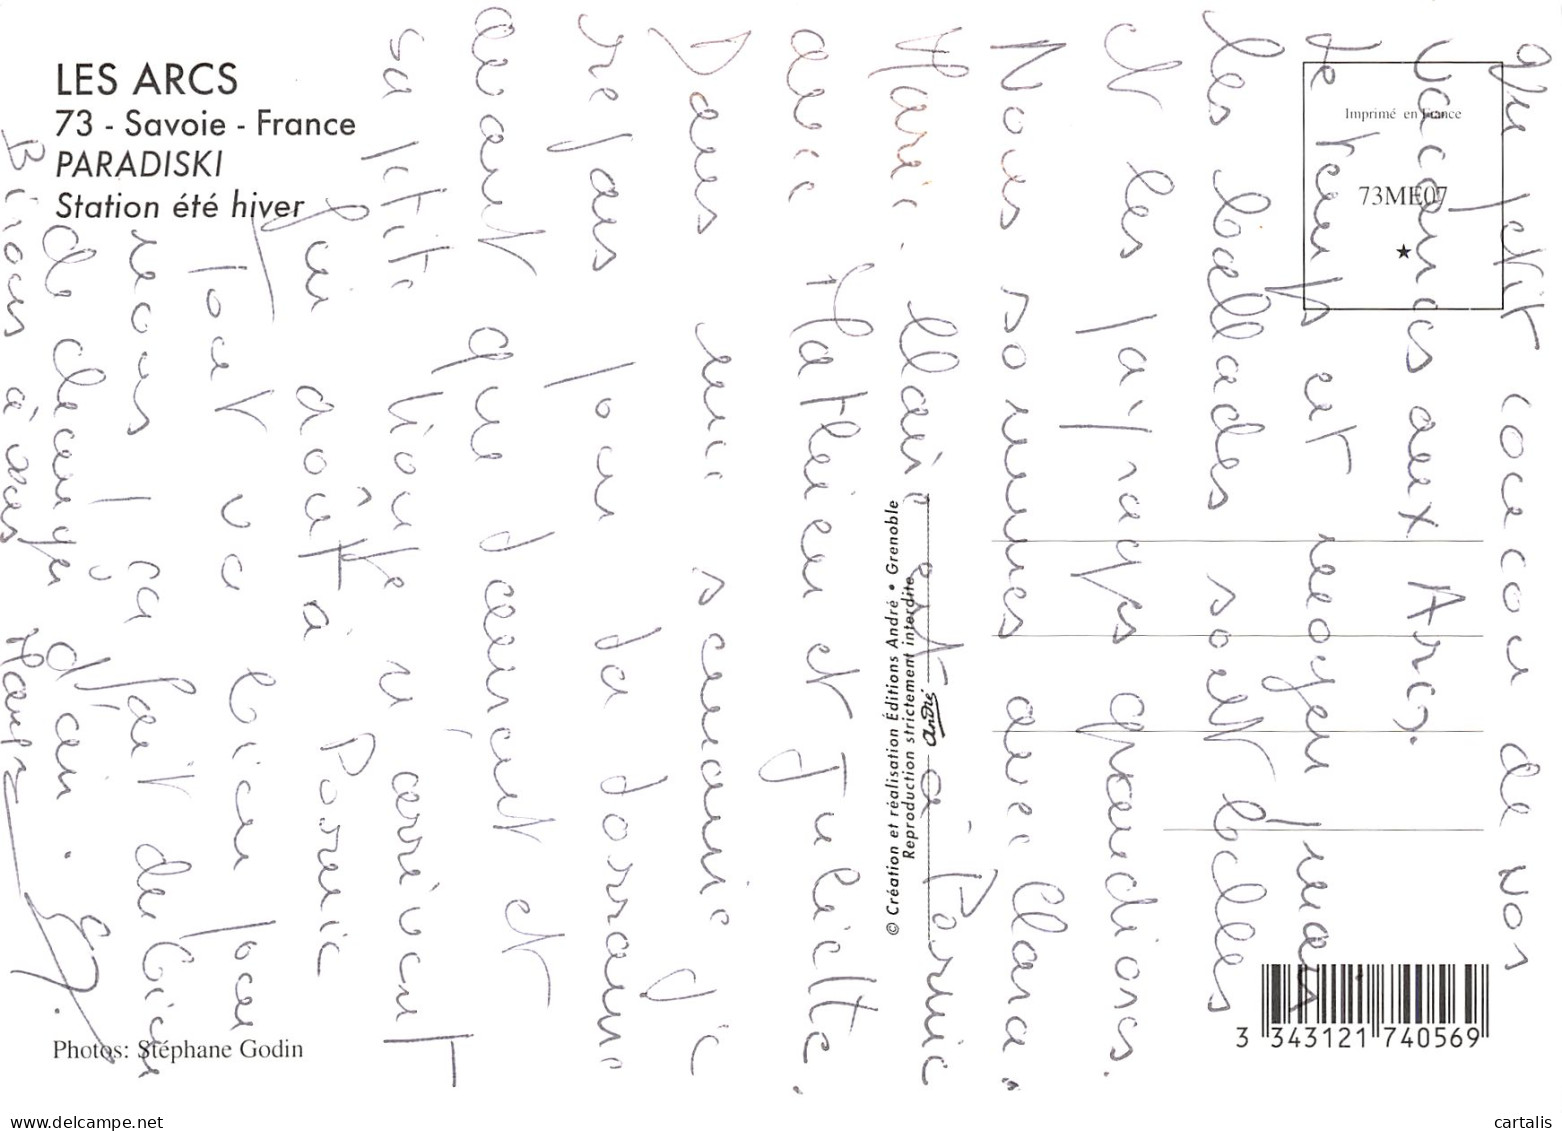 LES ARCS
73 - Savoie - France
PARADISKI
Station été hiver
Imprimé en France
73ME07
★
© Création et réalisation Éditions André • Grenoble
Reproduction strictement interdite
André
Photos: Stéphane Godin
3 343121 740569
Un petit coucou de nos
vacances aux Arcs.
Le temps est moyen mais
les ballades sont belles
et les paysages grandioses.
Nous sommes avec Clara.
Marie. est à Pornic
avec Mathieu et Juliette.
Dans une semaine je
repars pour la
avant que Laurent et
sa petite arrivent
fin août à Pornic
Tout va bien pour
nous, ça fait du bien
de changer d'air.
Bisous à vous
cartalis.com